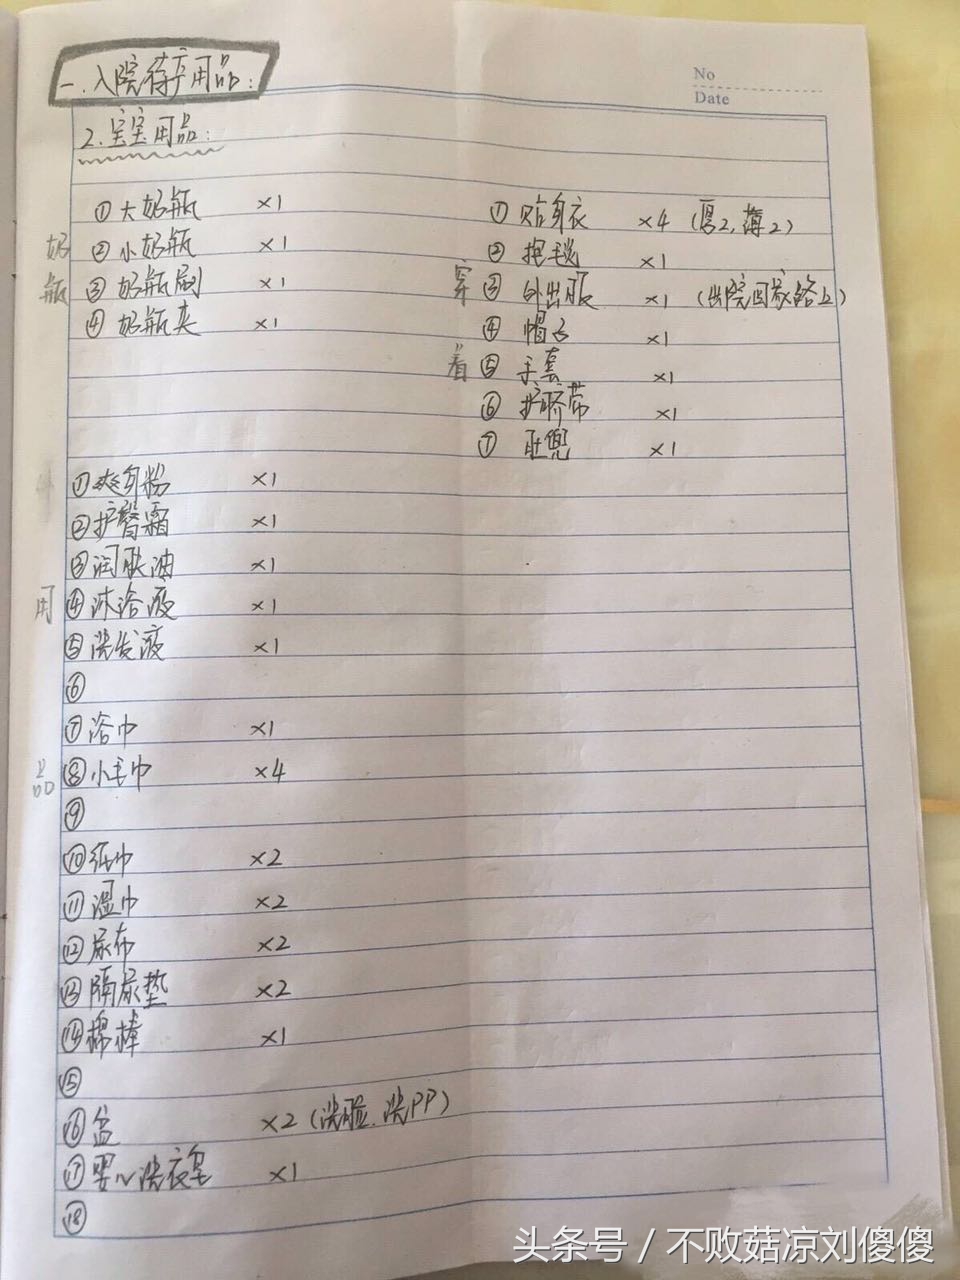 一.入院待产用品:
No
Date
2.宝宝用品:
奶瓶
① 大奶瓶 ×1
② 小奶瓶 ×1
③ 奶瓶刷 ×1
④ 奶瓶夹 ×1
穿着
① 贴身衣 ×4 (厚2,薄2)
② 抱毯 ×1
③ 外出服 ×1 (出院回家路上)
④ 帽子 ×1
⑤ 手套 ×1
⑥ 护脐带 ×1
⑦ 肚兜 ×1
用品
① 爽身粉 ×1
② 护臀霜 ×1
③ 润肤油 ×1
④ 沐浴液 ×1
⑤ 洗发液 ×1
⑥
⑦ 浴巾 ×1
⑧ 小毛巾 ×4
⑨
⑩ 纸巾 ×2
⑪ 湿巾 ×2
⑫ 尿布 ×2
⑬ 隔尿垫 ×2
⑭ 棉棒 ×1
⑮
⑯ 盆 ×2 (洗脸.洗PP)
⑰ 婴儿洗衣皂 ×1
⑱
头条号 / 不败菇凉刘傻傻